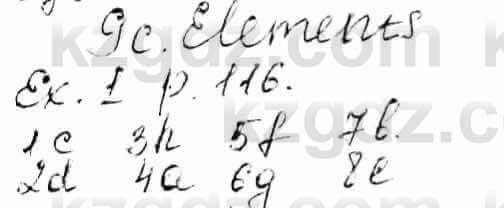 9c. Elements
Ex. 1 p. 116.
1c 3h 5f 7b.
2d 4a 6g 8e